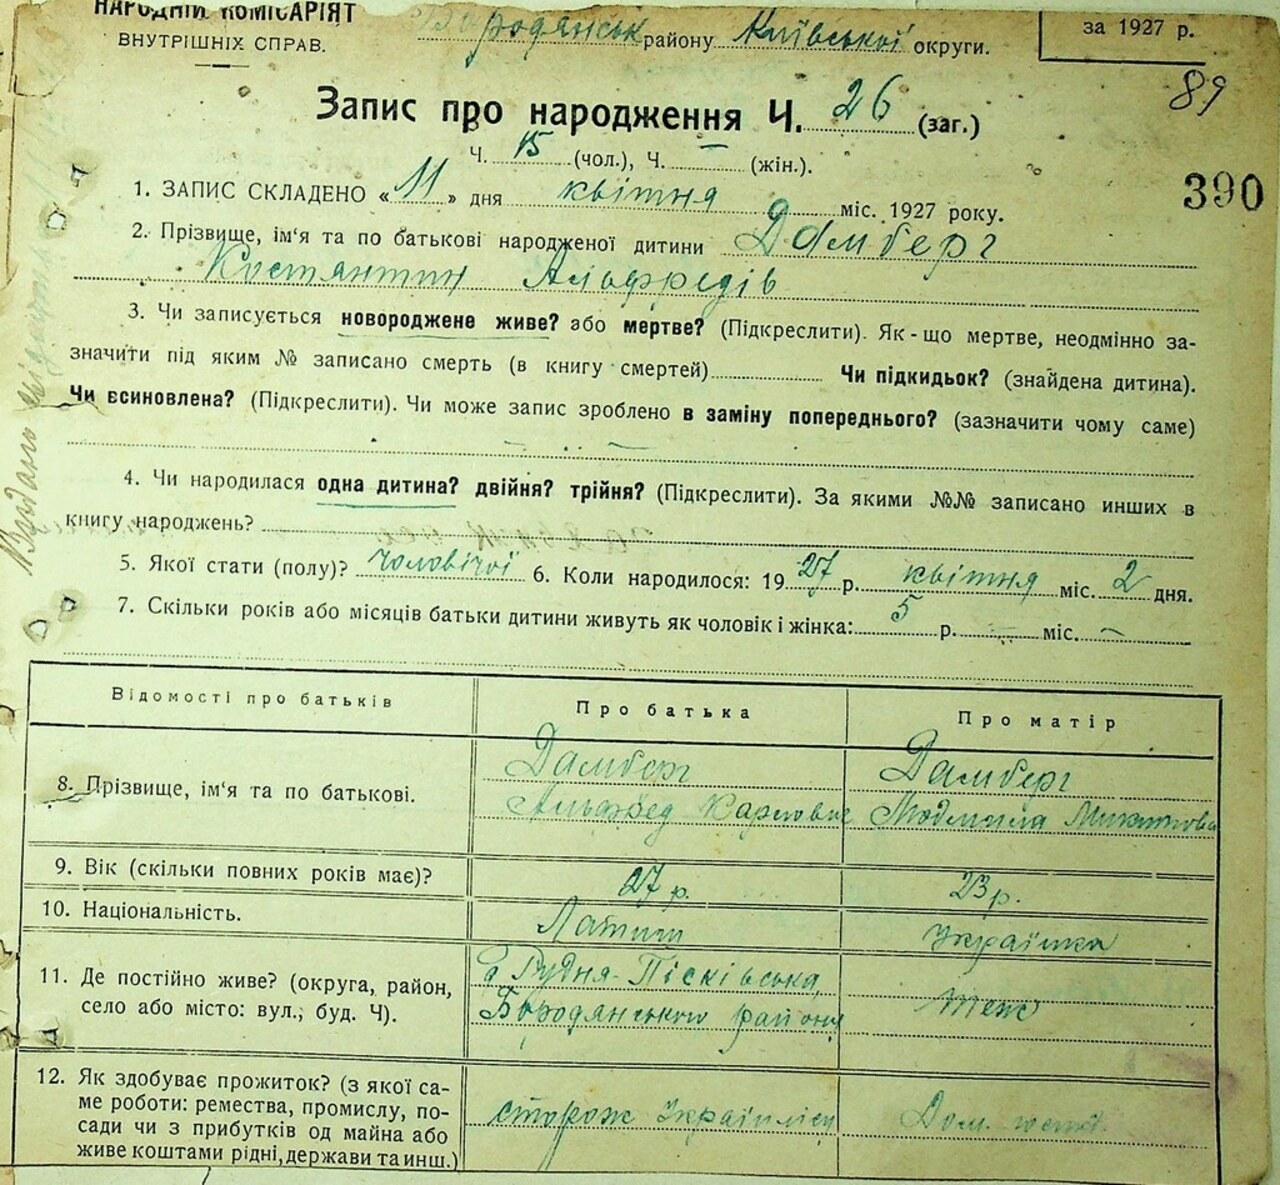 НАРОДНІЙ КОМІСАРІЯТ
ВНУТРІШНІХ СПРАВ.
Бородянськ району Київської округи.
за 1927 р.
89
Запис про народження Ч. 26 (заг.)
Ч. 15 (чол.), Ч. — (жін.).
390
1. ЗАПИС СКЛАДЕНО «11» дня квітня міс. 1927 року.
2. Прізвище, ім'я та по батькові народженої дитини Дамберг
Костянтин Альфредів
3. Чи записується новороджене живе? або мертве? (Підкреслити). Як-що мертве, неодмінно за-
значити під яким № записано смерть (в книгу смертей) Чи підкидьок? (знайдена дитина).
Чи всиновлена? (Підкреслити). Чи може запис зроблено в заміну попереднього? (зазначити чому саме)
4. Чи народилася одна дитина? двійня? трійня? (Підкреслити). За якими №№ записано инших в
книгу народжень?
5. Якої стати (полу)? чоловічої 6. Коли народилося: 1927 р. квітня міс. 2 дня.
7. Скільки років або місяців батьки дитини живуть як чоловік і жінка: 5 р. — міс. —
Відомості про батьків
Про батька
Про матір
8. Прізвище, ім'я та по батькові.
Дамберг
Альфред Карлович
Дамберг
Людмила Микитовна
9. Вік (скільки повних років має)?
27 р.
23 р.
10. Національність.
Латиш
Українка
11. Де постійно живе? (округа, район,
село або місто: вул., буд. Ч).
Рудня-Пісківська,
Бородянського району
теж
12. Як здобуває прожиток? (з якої са-
ме роботи: ремества, промислу, по-
сади чи з прибутків од майна або
живе коштами рідні, держави та инш.)
сторож
Дом. госп.